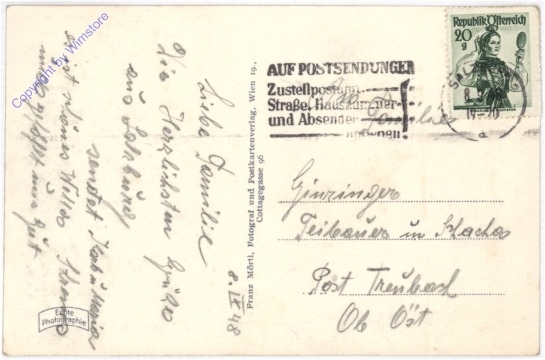 Copyright by Wimstore
Liebe Familie
8. IX 48
Die Herzlichsten Grüße
aus Salzburg
sendet
ist schönes
uns gut
Echte
Photographie
Franz Mörtl, Fotograf und Postkartenverlag, Wien 19.,
Cottagegasse 96
AUF POSTSENDUNGEN
Zustellpostamt
Straße, Hausnummer
und Absender
angeben!
Republik Österreich
20
g
8.
19-20
a
Familie
Ginzinger
Teibauer in
Post Treubach
Ob Öst